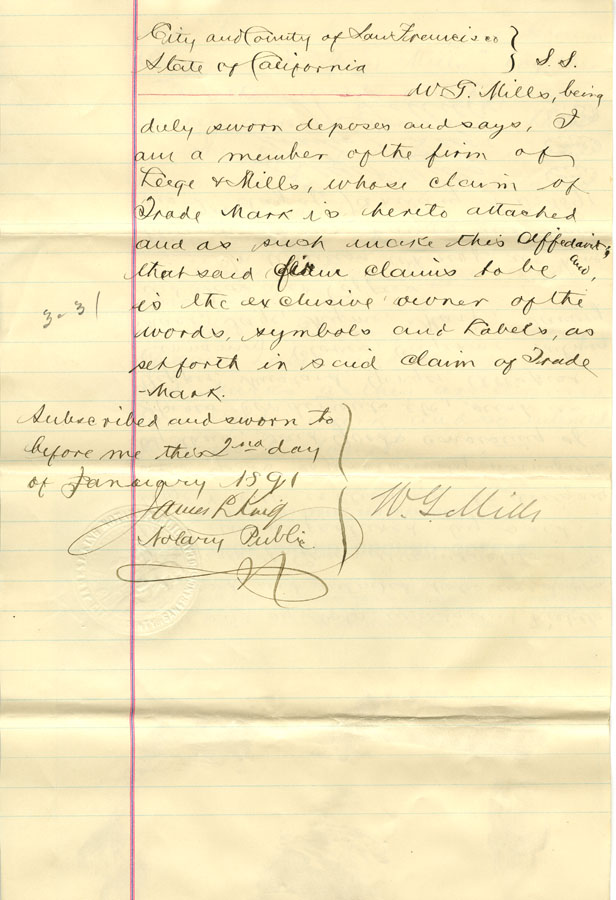 City and County of San Francisco }
State of California } S.S.
W. G. Mills, being
duly sworn deposes and says, I
am a member of the firm of
Leege & Mills, whose claim of
Trade Mark is hereto attached
and as such make this Affidavit;
that said firm claims to be and,
is the exclusive owner of the
words, symbols and Labels, as
set forth in said claim of Trade
-Mark.
Subscribed and sworn to
before me this 2nd day
of January 1891
James L. King
Notary Public.
W. G. Mills